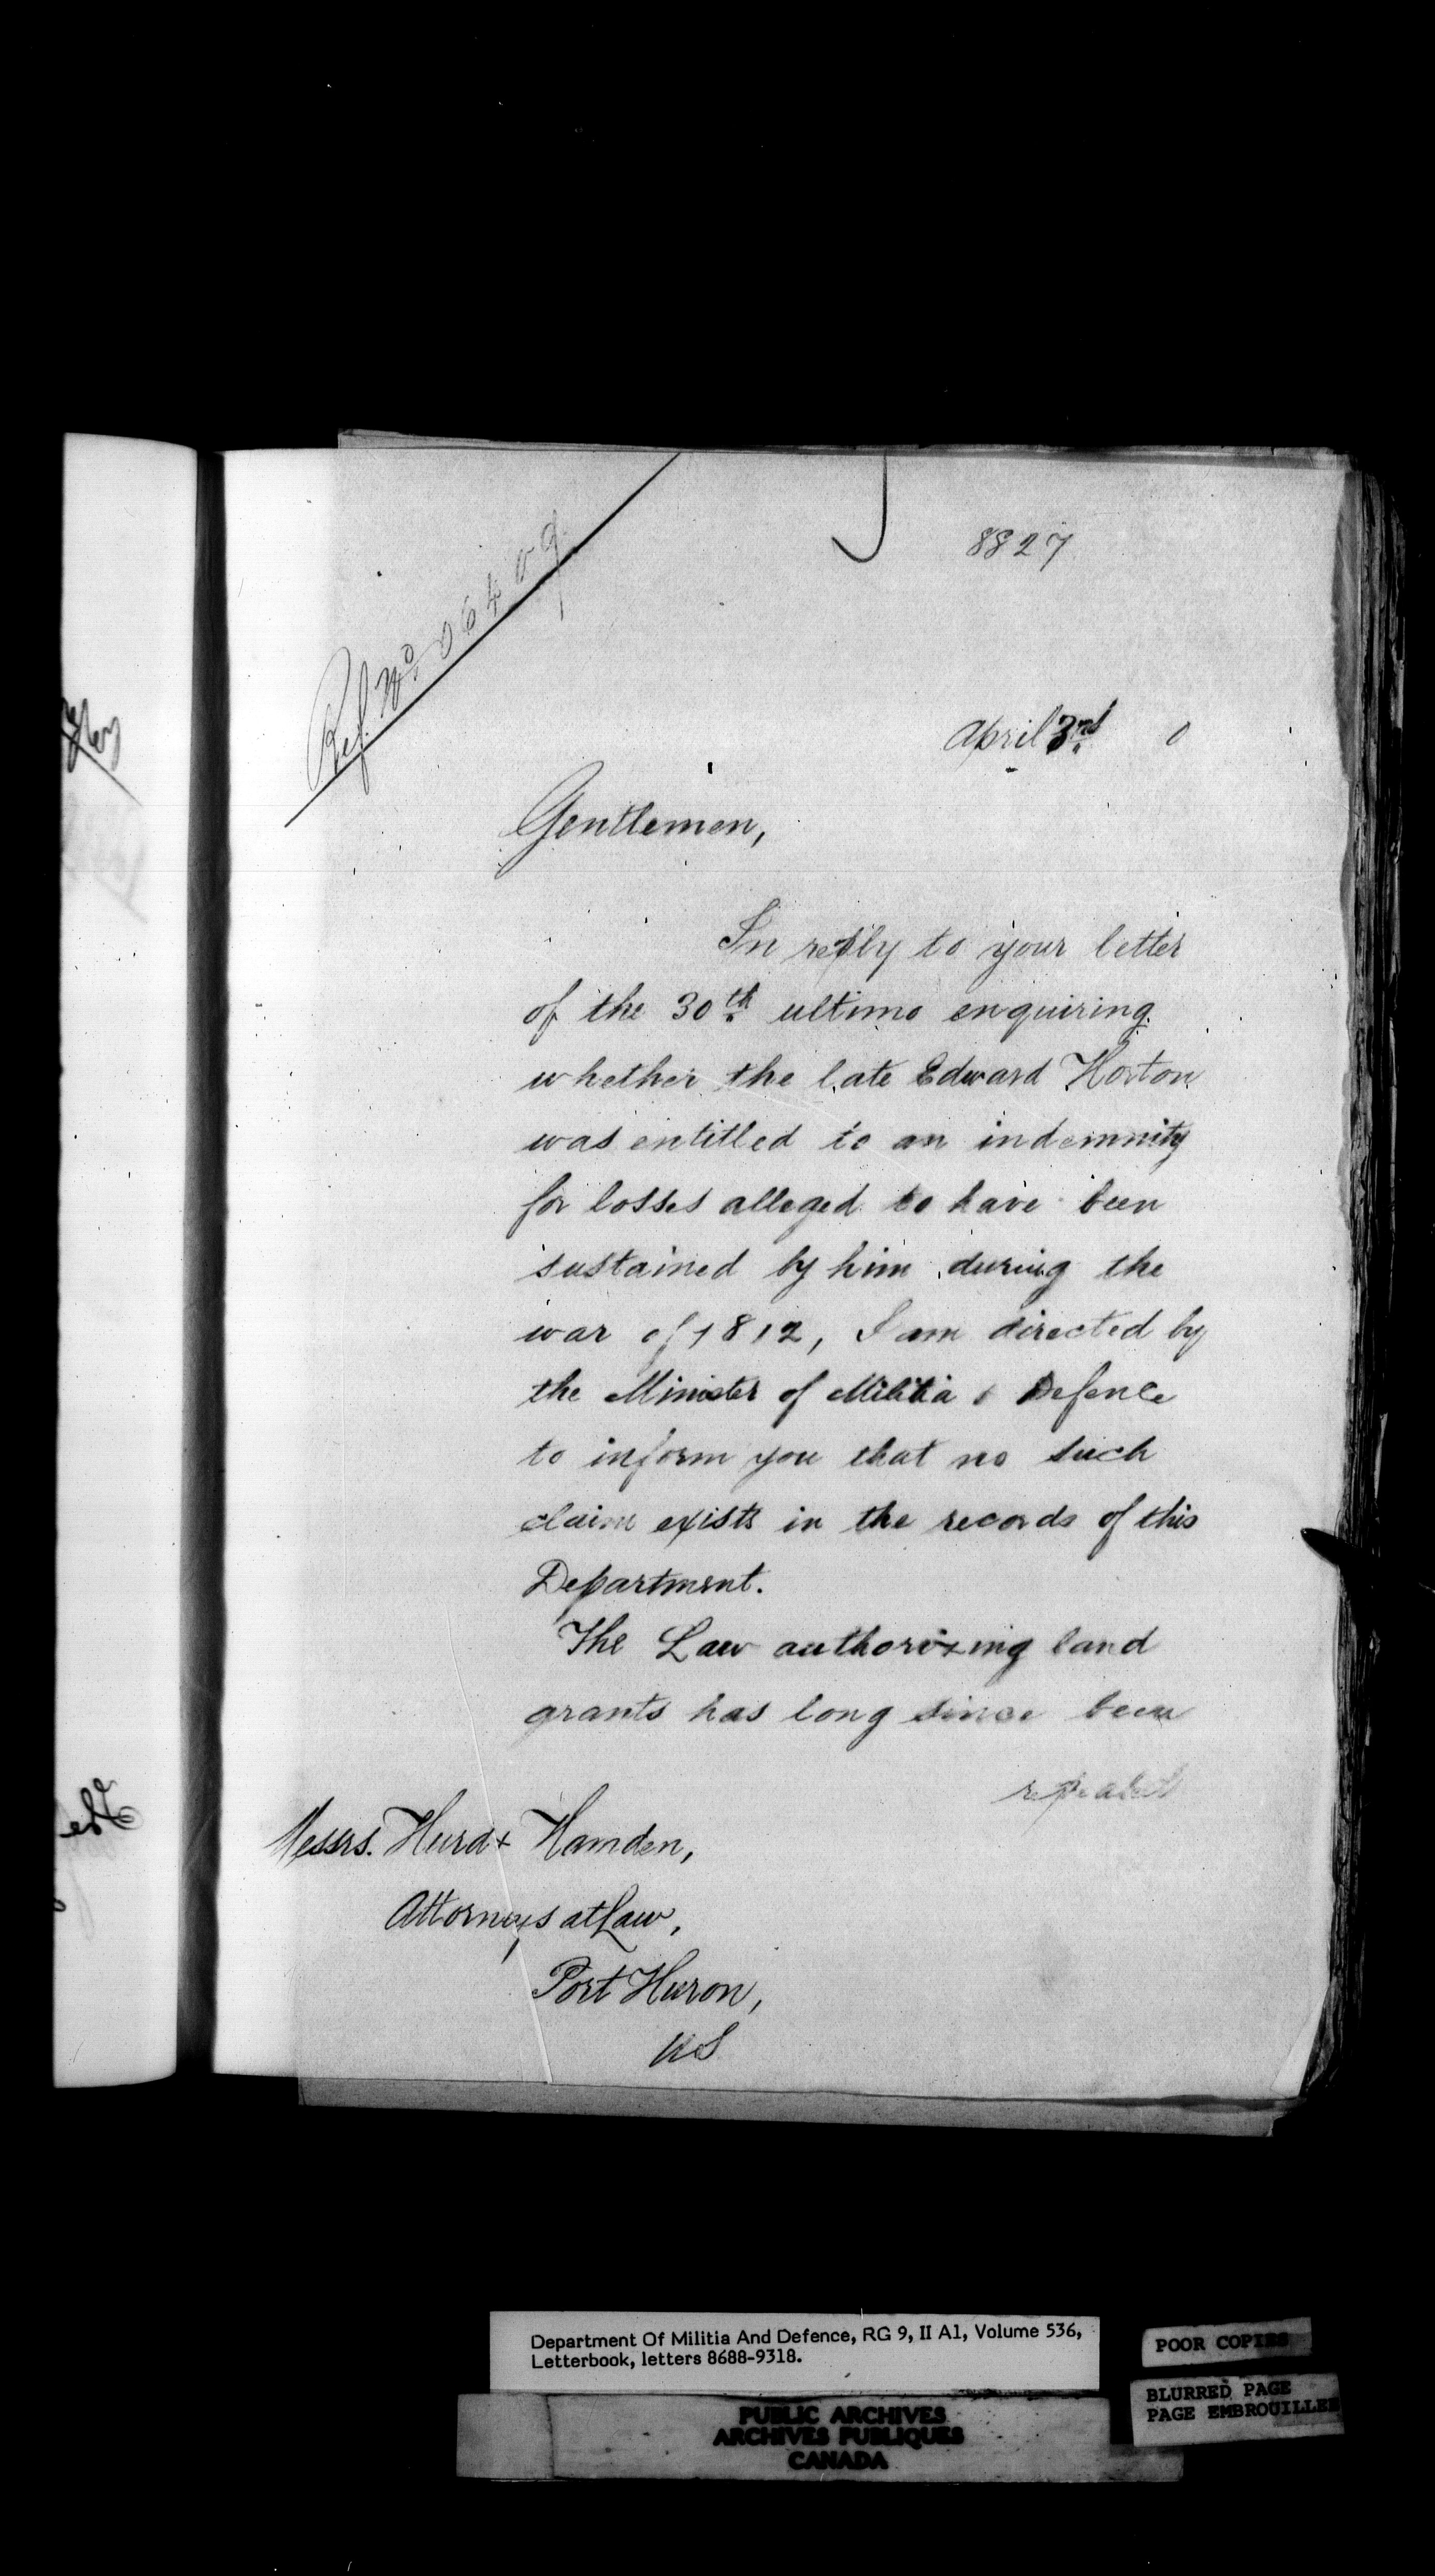 8827
Ref. No. 06409
April 3rd 0
Gentlemen,
In reply to your letter
of the 30th ultimo enquiring
whether the late Edward Horton
was entitled to an indemnity
for losses alleged to have been
sustained by him during the
war of 1812, I am directed by
the Minister of Militia & Defence
to inform you that no such
claim exists in the records of this
Department.
The Law authorizing land
grants has long since been
repealed
Messrs. Hurd & Hamden,
Attorneys at Law,
Port Huron,
US
Department Of Militia And Defence, RG 9, II A1, Volume 536,
Letterbook, letters 8688-9318.
POOR COPIES
BLURRED PAGE
PAGE EMBROUILLEE
PUBLIC ARCHIVES
ARCHIVES PUBLIQUES
CANADA